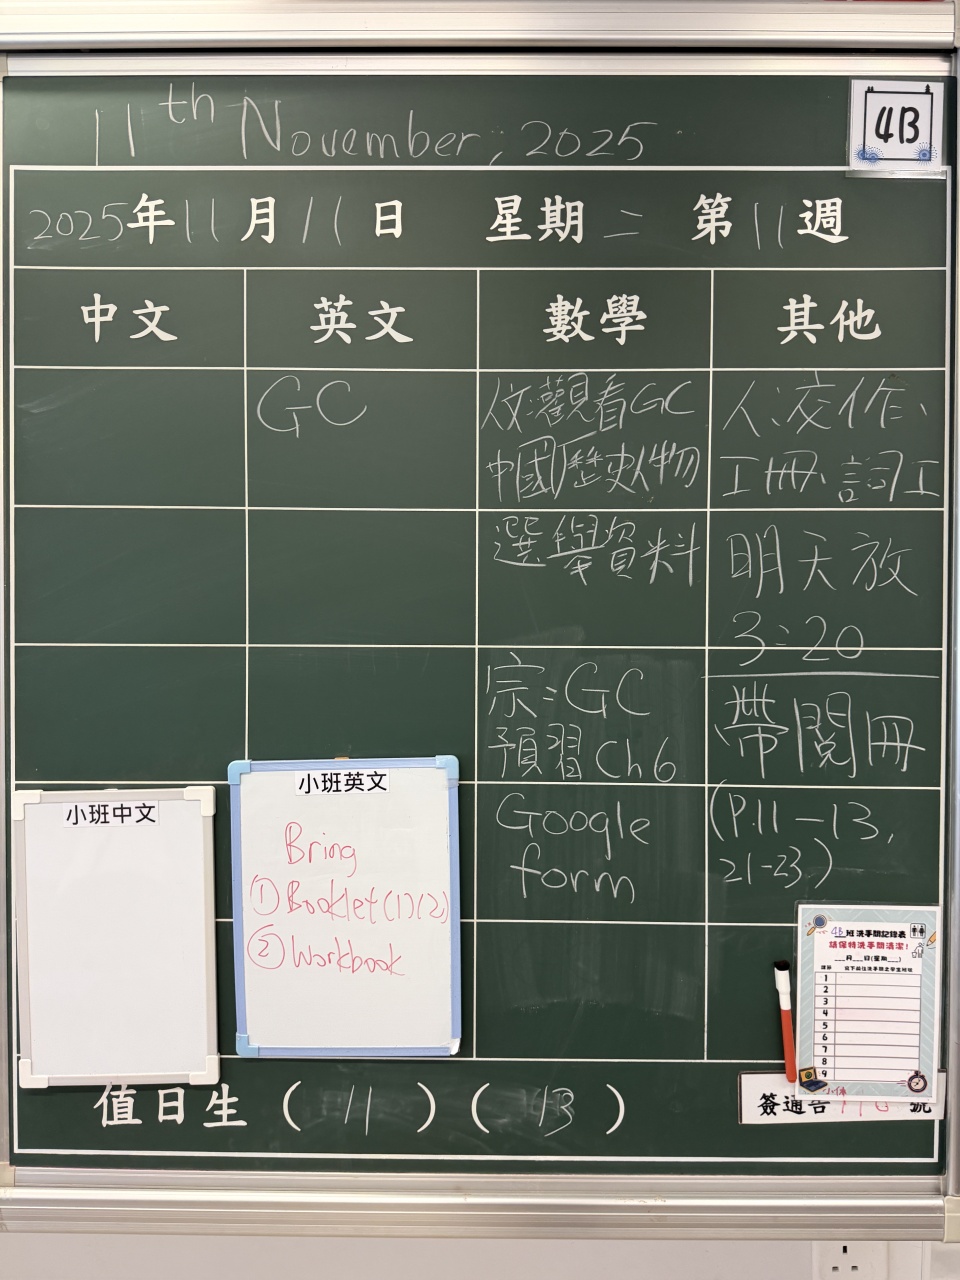 11th November, 2025
4B
2025年11月11日 星期二 第11週
中文 英文 數學 其他
GC
人文:觀看GC
中國歷史人物
選舉資料
宗:GC
預習Ch6
Google
form
人:交作、
工冊、詞工
明天放
3:20
帶閱冊
(P.11-13,
21-23.)
小班中文
小班英文
Bring
①Booklet(1)(2)
②Workbook
4B班洗手間記錄表
請保持洗手間清潔!
___月___日(星期___)
課節
1
2
3
4
5
6
7
8
9
值日生(11)(13)
簽通告 號